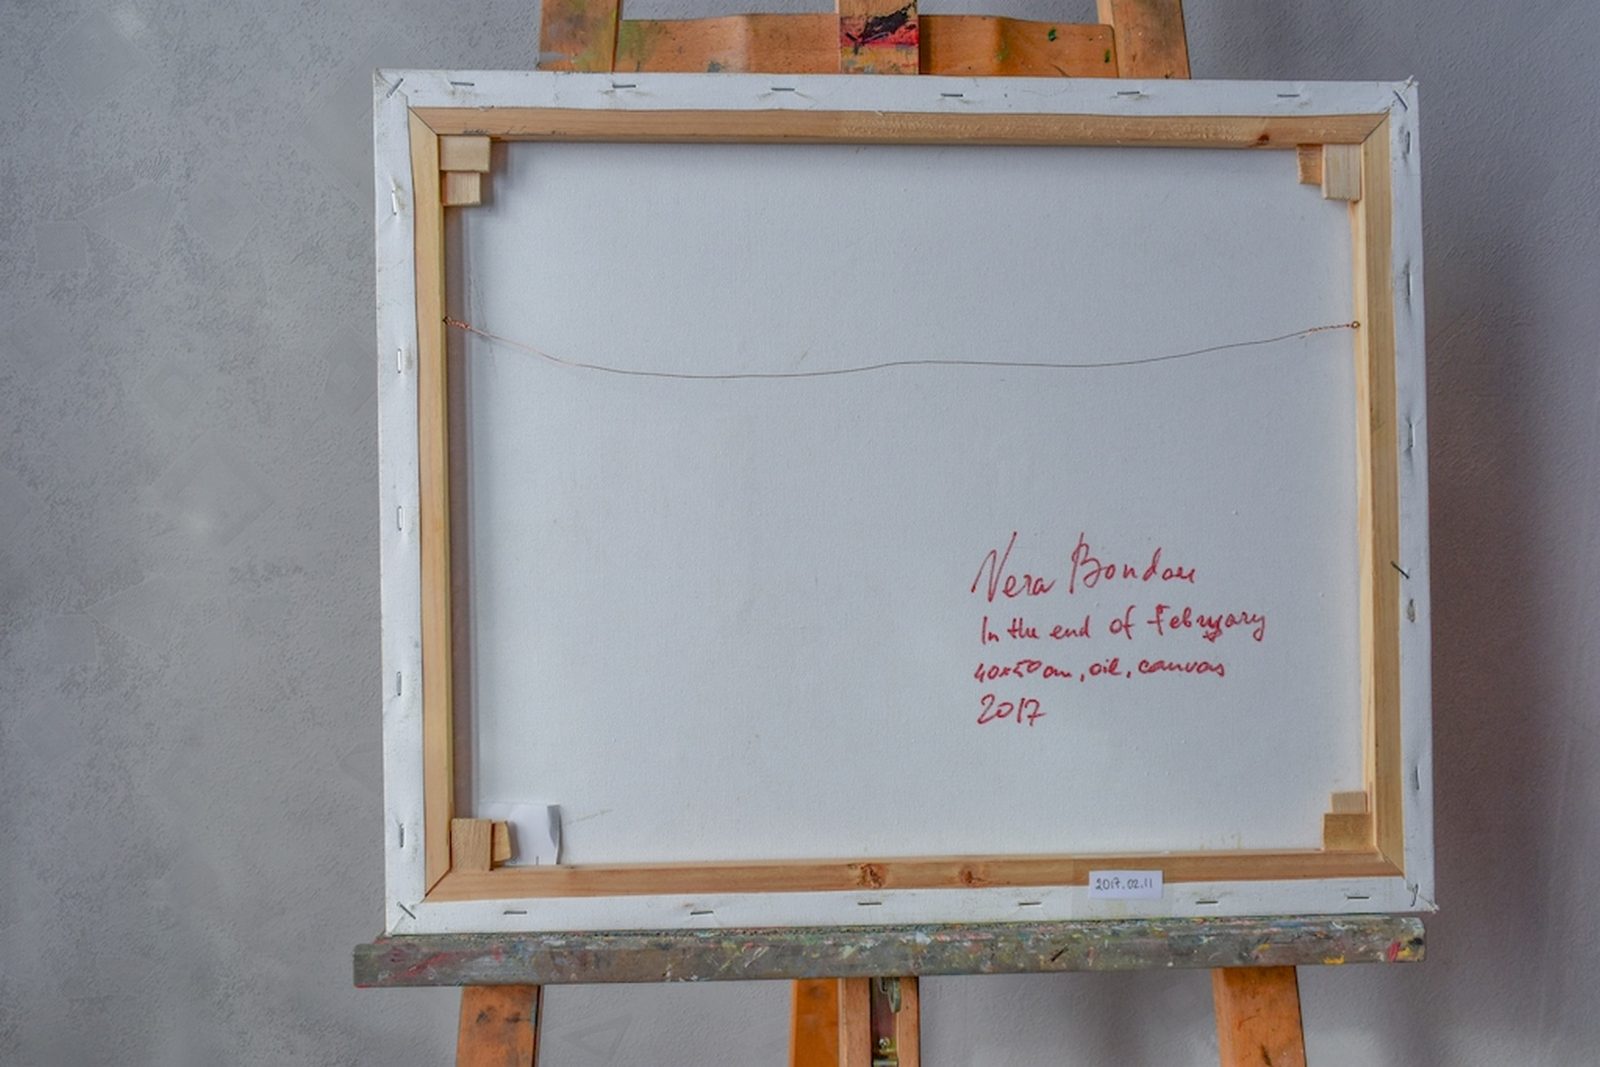 Vera Bondare
In the end of February
40x50 cm, oil, canvas
2017
2017.02.11